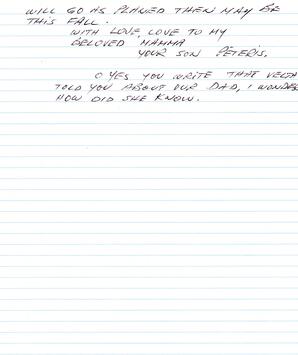 WILL GO AS PLANED THEN MAY BE
THIS FALL.
WITH LOVE, LOVE TO MY
BELOVED MAMMA
YOUR SON PETERIS.
O YES YOU WRITE THAT VELTA
TOLD YOU ABOUT OUR DAD, I WONDER
HOW DID SHE KNOW.